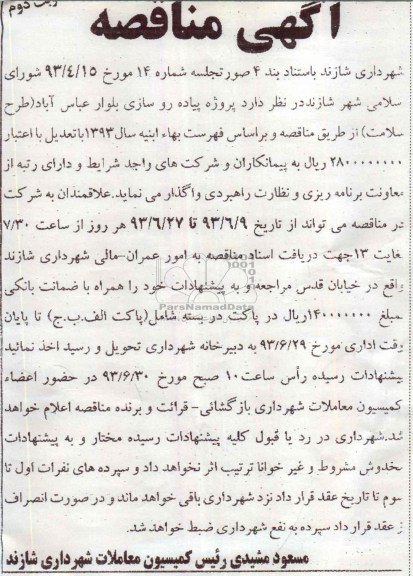 نوبت دوم
آگهی مناقصه
شهرداری شازند باستناد بند ۴ صورتجلسه شماره ۱۴ مورخ ۹۳/٤/۱۵ شورای
اسلامی شهر شازنددر نظر دارد پروژه پیاده رو سازی بلوار عباس آباد(طرح
سلامت) از طریق مناقصه و براساس فهرست بهاء ابنیه سال۱۳۹۳باتعدیل با اعتبار
۲۸۰۰۰۰۰۰۰۰ ریال به پیمانکاران و شرکت های واجد شرایط و دارای رتبه از
معاونت برنامه ریزی و نظارت راهبردی واگذار می نماید.علاقمندان به شرکت
در مناقصه می تواند از تاریخ ۹۳/٦/۹ تا ۹۳/٦/۲۷ هر روز از ساعت ۷/۳۰
لغایت ۱۳جهت دریافت اسناد مناقصه به امور عمران-مالی شهرداری شازند
واقع در خیابان قدس مراجعه و به پیشنهادات خود را همراه با ضمانت بانکی
مبلغ ۱۴۰۰۰۰۰۰۰ریال در پاکت در بسته شامل(پاکت الف.ب.ج) تا پایان
وقت اداری مورخ ۹۳/٦/۲۹ به دبیرخانه شهرداری تحویل و رسید اخذ نمائید
پیشنهادات رسیده رأس ساعت۱۰ صبح مورخ ۹۳/٦/۳۰ در حضور اعضاء
کمیسیون معاملات شهرداری بازگشائی- قرائت و برنده مناقصه اعلام خواهد
شد.شهرداری در رد یا قبول کلیه پیشنهادات رسیده مختار و به پیشنهادات
مخدوش مشروط و غیر خوانا ترتیب اثر نخواهد داد و سپرده های نفرات اول تا
سوم تا تاریخ عقد قرار داد نزد شهرداری باقی خواهد ماند و در صورت انصراف
از عقد قرار داد سپرده به نفع شهرداری ضبط خواهد شد.
مسعود مشیدی رئیس کمیسیون معاملات شهرداری شازند
ParsNamadData